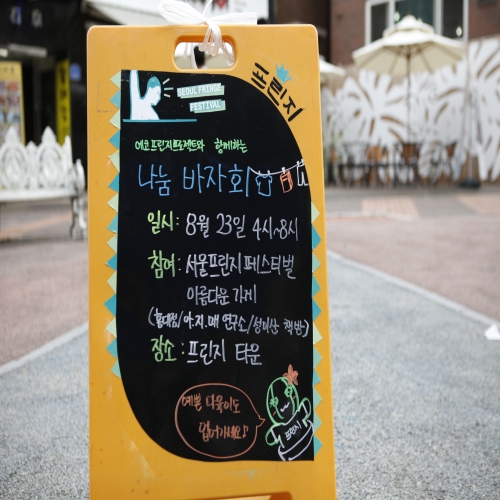 SEOUL FRINGE
FESTIVAL
프린지
에코프린지프로젝트와 함께하는
나눔 바자회
일시: 8월 23일 4시~8시
참여: 서울프린지페스티벌
아름다운 가게
(홍대점/아.지.매 연구소/성미산 책방)
장소: 프린지 타운
예쁜 다육이도
업어가세요♪
프린지